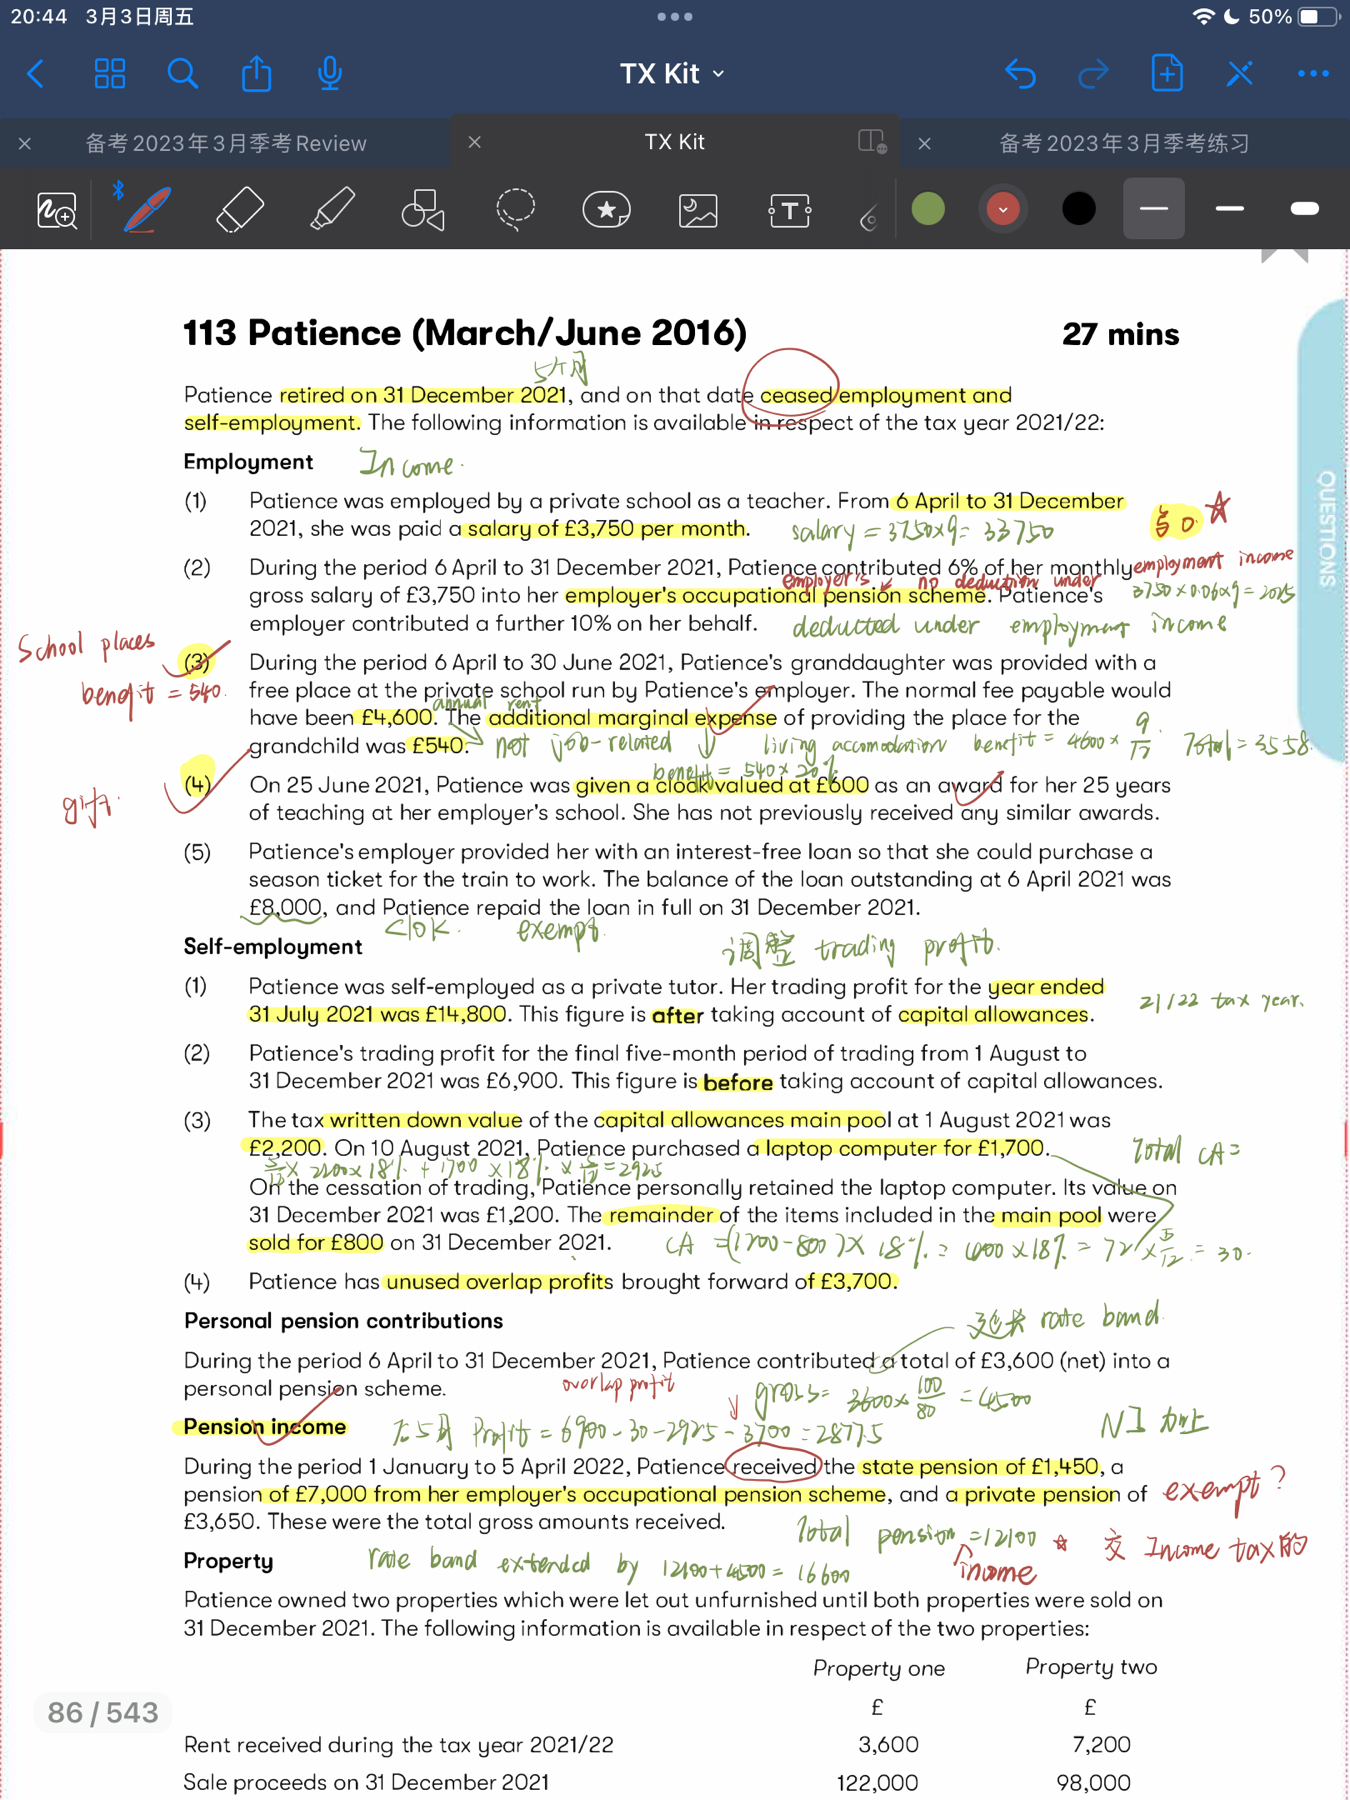 20:44 3月3日周五 50%
TX Kit
备考2023年3月季考Review
TX Kit
备考2023年3月季考练习
113 Patience (March/June 2016) 27 mins
5个月
Patience retired on 31 December 2021, and on that date ceased employment and
self-employment. The following information is available in respect of the tax year 2021/22:
Employment Income.
(1) Patience was employed by a private school as a teacher. From 6 April to 31 December
2021, she was paid a salary of £3,750 per month. salary = 3750×9= 33750
(2) During the period 6 April to 31 December 2021, Patience contributed 6% of her monthly employment income
employer's no deduction under
gross salary of £3,750 into her employer's occupational pension scheme. Patience's 3750×0.06×9=2025
employer contributed a further 10% on her behalf. deducted under employment income
School places
benefit = 540.
(3) During the period 6 April to 30 June 2021, Patience's granddaughter was provided with a
free place at the private school run by Patience's employer. The normal fee payable would
annual rent
have been £4,600. The additional marginal expense of providing the place for the
grandchild was £540. not job-related living accomodation benefit = 4600× 9/12 Total = 3558
benefit = 540×20%
gift.
(4) On 25 June 2021, Patience was given a clock valued at £600 as an award for her 25 years
of teaching at her employer's school. She has not previously received any similar awards.
(5) Patience's employer provided her with an interest-free loan so that she could purchase a
season ticket for the train to work. The balance of the loan outstanding at 6 April 2021 was
£8,000, and Patience repaid the loan in full on 31 December 2021.
<10K. exempt.
Self-employment 调整 trading profit.
(1) Patience was self-employed as a private tutor. Her trading profit for the year ended
31 July 2021 was £14,800. This figure is after taking account of capital allowances.
21/22 tax year.
(2) Patience's trading profit for the final five-month period of trading from 1 August to
31 December 2021 was £6,900. This figure is before taking account of capital allowances.
(3) The tax written down value of the capital allowances main pool at 1 August 2021 was
£2,200. On 10 August 2021, Patience purchased a laptop computer for £1,700. Total CA=
5/12× 2200×18% + 1700×18%×5/12=292.5
On the cessation of trading, Patience personally retained the laptop computer. Its value on
31 December 2021 was £1,200. The remainder of the items included in the main pool were
sold for £800 on 31 December 2021. CA =(1200-800)×18% = 400×18% = 72×5/12 = 30.
(4) Patience has unused overlap profits brought forward of £3,700.
Personal pension contributions 延长 rate band.
During the period 6 April to 31 December 2021, Patience contributed a total of £3,600 (net) into a
personal pension scheme. overlap profit gross= 3600×100/80 =4500
Pension income 后5月 Profit = 6900-30-292.5-3700=2877.5 NI 加上
During the period 1 January to 5 April 2022, Patience received the state pension of £1,450, a
pension of £7,000 from her employer's occupational pension scheme, and a private pension of exempt?
£3,650. These were the total gross amounts received. Total pension =12100 交 Income tax的
income
Property rate band extended by 12100+4500= 16600
Patience owned two properties which were let out unfurnished until both properties were sold on
31 December 2021. The following information is available in respect of the two properties:
Property one Property two
£ £
Rent received during the tax year 2021/22 3,600 7,200
Sale proceeds on 31 December 2021 122,000 98,000
QUESTIONS
86 / 543